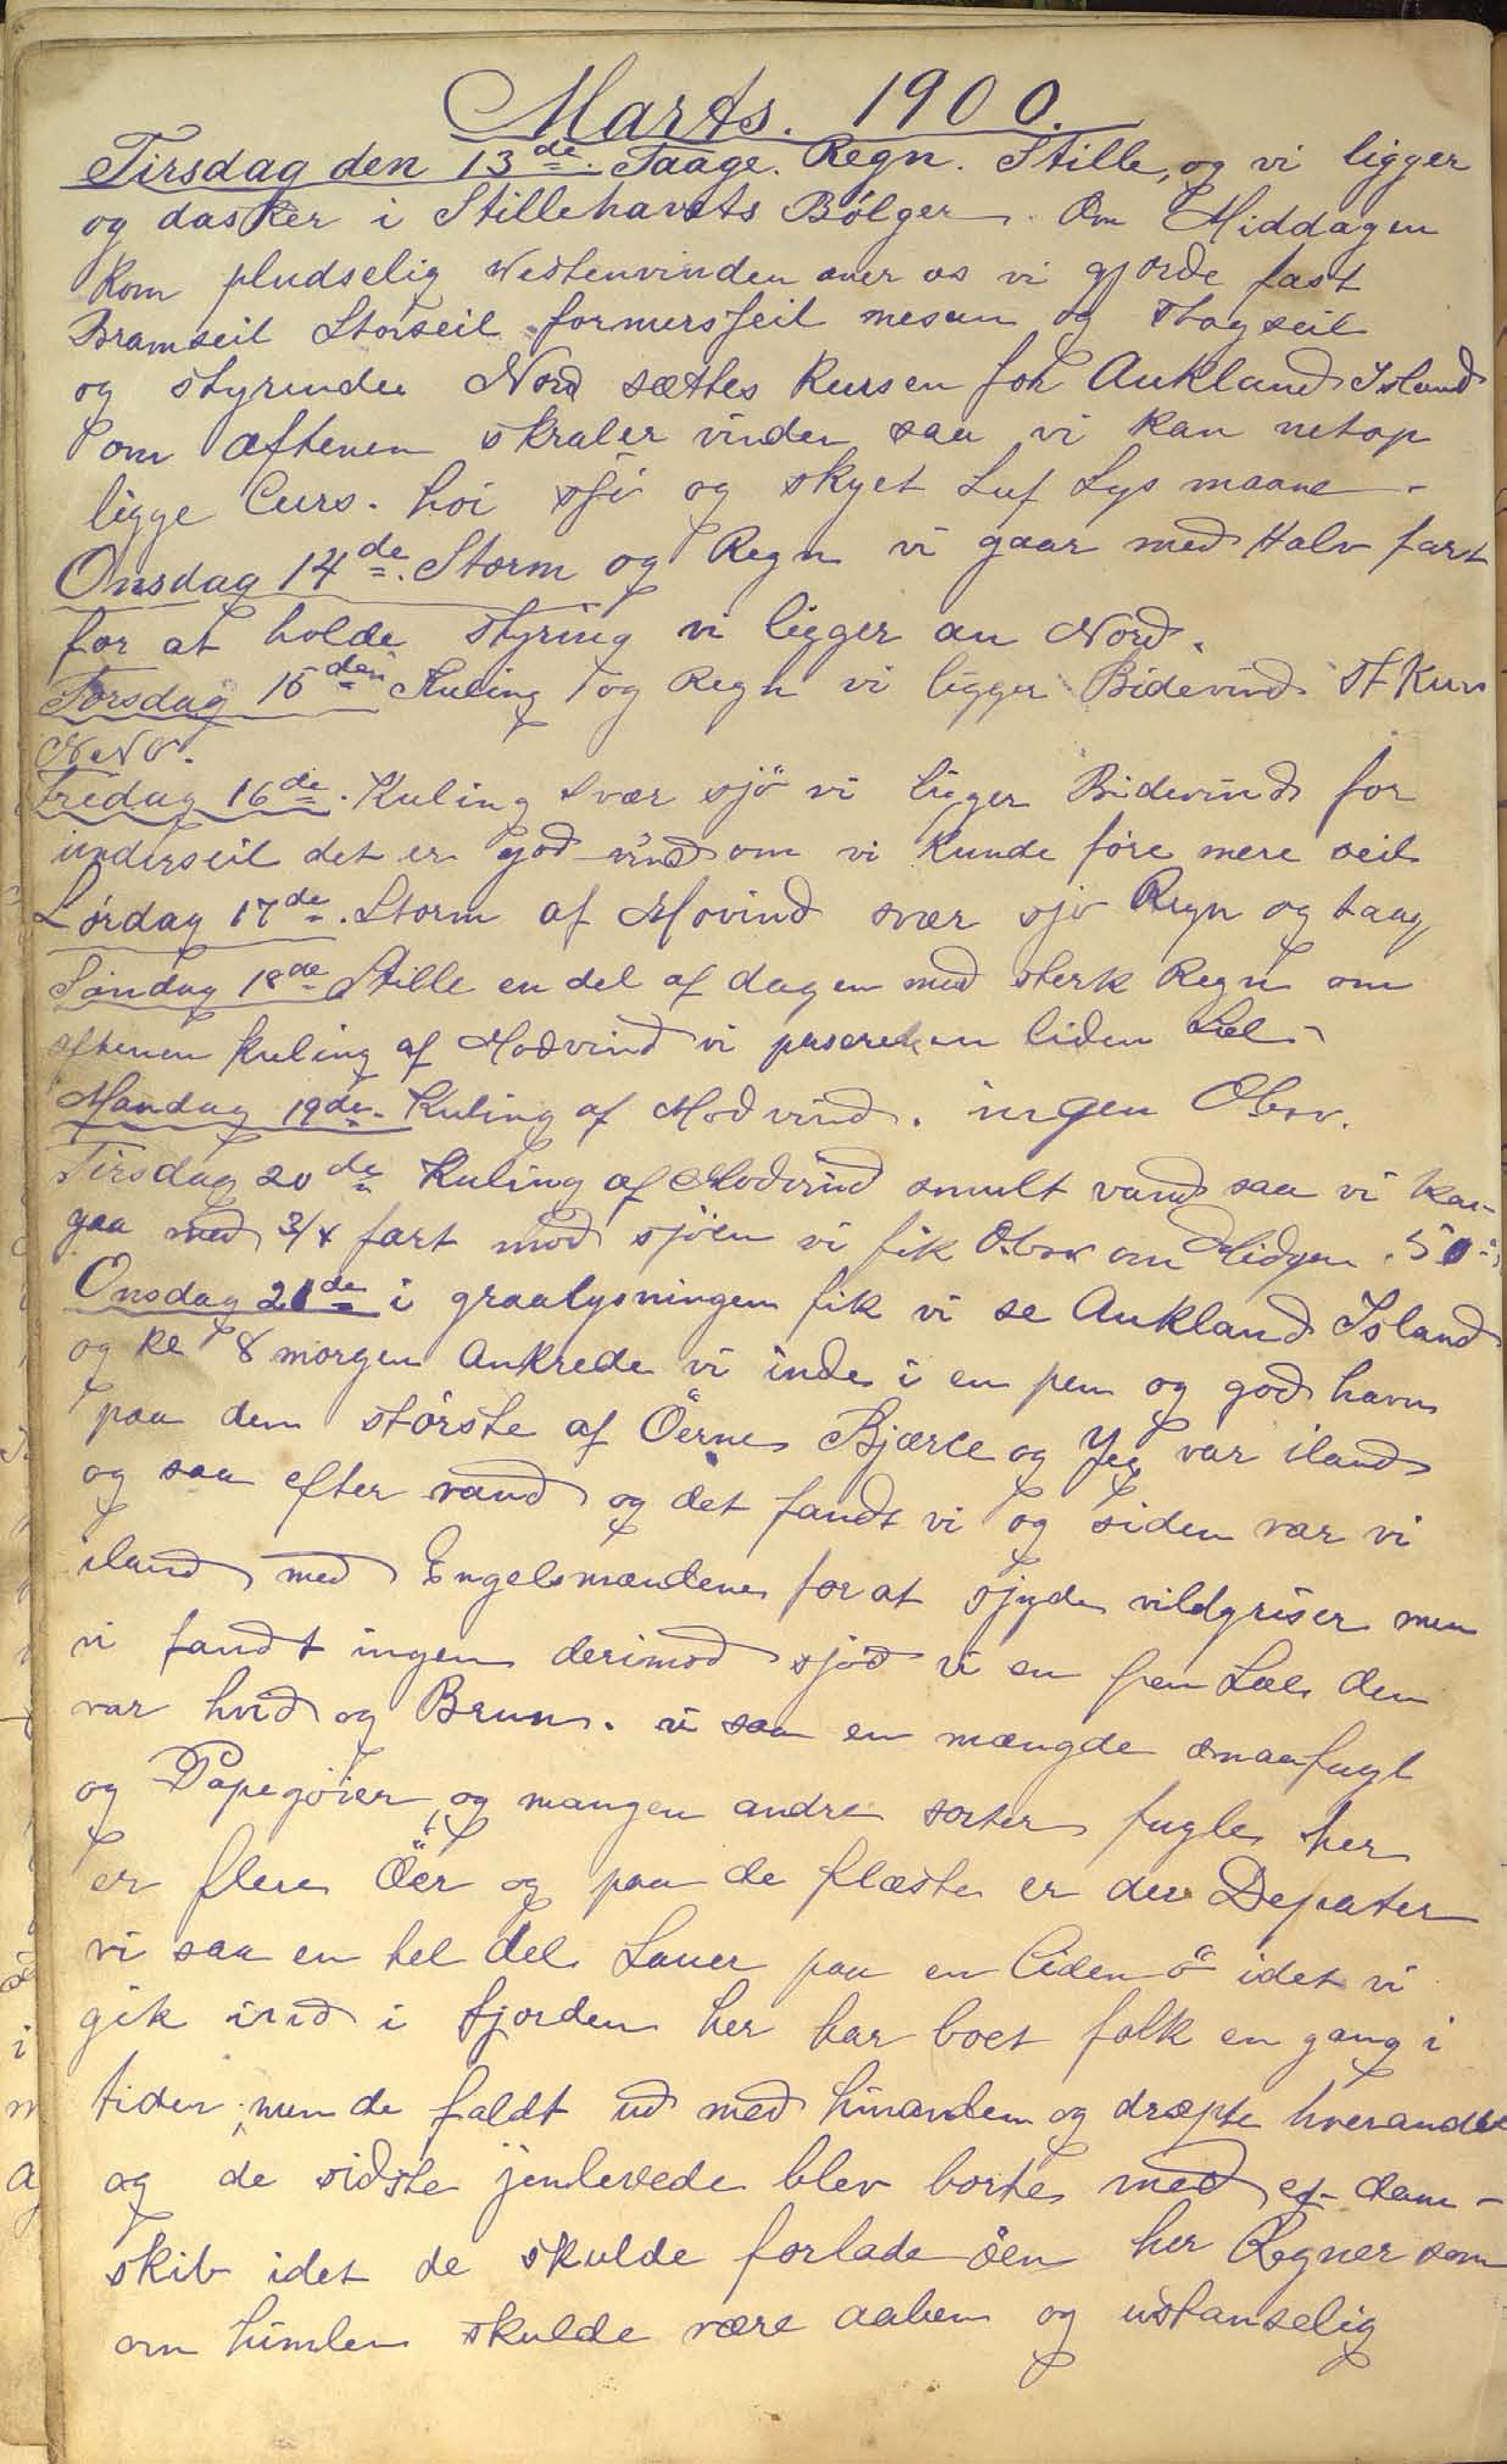 Marts. 1900.
Tirsdag den 13de. Taage. Regn. Stille, og vi ligger
og dasker i Stillehavets Bölger. Om Middagen
kom pludselig Vestenvinden over os vi gjorde fast
Bramseil Storseil formersseil mesan og Stagseil
og styrende Nord sættes kursen for Aukland Island
om aftenen skraler vinden saa vi kan netop
ligge Curs. höi sjö og skyet Luf Lys maane -
Onsdag 14de. Storm og Regn vi gaar med Halv fart
for at holde styring vi ligger an Nord.
Torsdag 15den Kuling og Regn vi ligger Bidevind Kurs
NNV.
Fredag 16de. Kuling Svær sjö vi ligger Bidevind for
underseil det er god vind om vi kunde före mere seil
Lördag 17de. Storm af Movind svær sjö Regn og taag
Söndag 18de Stille en del af dagen med sterk Regn om
aftenen kuling af Modvind vi paseret en liden Sæl
Mandag 19de. Kuling af Modvind. ingen Obsv.
Tirsdag 20de Kuling af Modvind smult vand saa vi kan
gaa med 3/4 fart mod sjöen vi fik Obsv om Midgen
Onsdag 21de i graalysningen fik vi se Aukland Island
og kl 8 morgen ankrede vi inde i en pen og god havn
paa den störste af Öerne Bjærce og Jeg var iland
og saa efter vand og det fandt vi og siden var vi
iland med Engelsmændene for at sjyde vildgriser men
vi fandt ingen derimod sjöd vi en pen Sæl den
var hvid og Brun. vi saa en mængde smaafugl
og Papegöier, og mangen andre sorter fugle her
er flere Öer og paa de flæste er der Depoter
vi saa en hel del Sauer paa en liden ö idet vi
gik ind i fjorden her har boet folk en gang i
tiden, men de faldt ud med hinanden og dræpte hverandre
og de sidste jenlevede blev borte med et dam-
skib idet de skulde forlade öen her Regner som
om himlen skulde være aaben og ustanselig